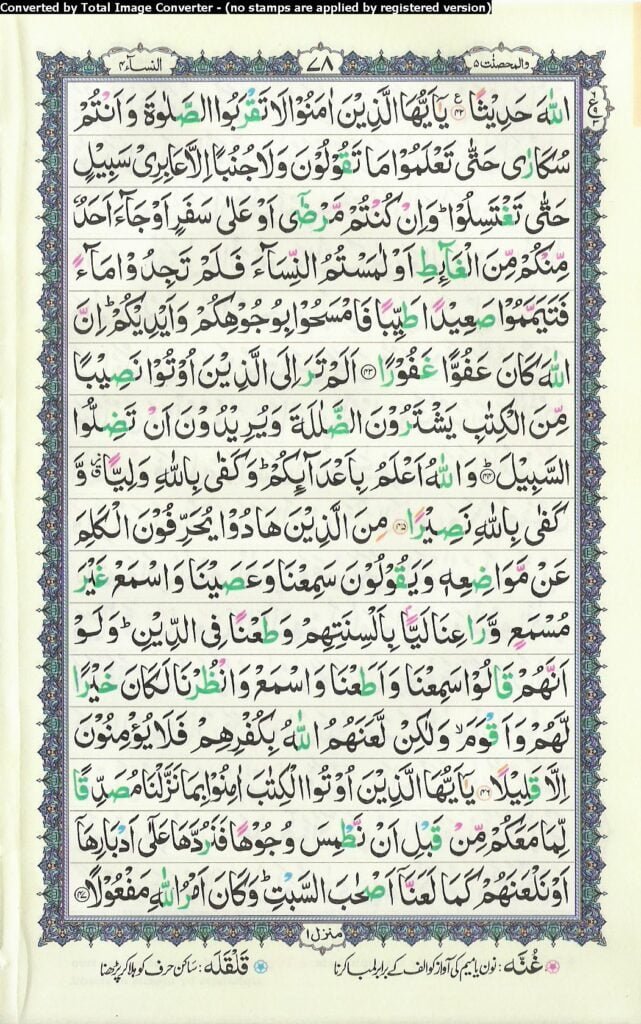 Converted by Total Image Converter - (no stamps are applied by registered version)
والمحصنت ۵ ۷۸ النسآء ۴
اللّٰهَ حَدِيْثًا ﴿۴۲﴾ يٰۤاَيُّهَا الَّذِيْنَ اٰمَنُوْا لَا تَقْرَبُوا الصَّلٰوةَ وَ اَنْتُمْ
سُكَارٰى حَتّٰى تَعْلَمُوْا مَا تَقُوْلُوْنَ وَ لَا جُنُبًا اِلَّا عَابِرِىْ سَبِيْلٍ
حَتّٰى تَغْتَسِلُوْا ؕ وَ اِنْ كُنْتُمْ مَّرْضٰۤى اَوْ عَلٰى سَفَرٍ اَوْ جَآءَ اَحَدٌ
مِّنْكُمْ مِّنَ الْغَآىِٕطِ اَوْ لٰمَسْتُمُ النِّسَآءَ فَلَمْ تَجِدُوْا مَآءً
فَتَيَمَّمُوْا صَعِيْدًا طَيِّبًا فَامْسَحُوْا بِوُجُوْهِكُمْ وَ اَيْدِيْكُمْ ؕ اِنَّ
اللّٰهَ كَانَ عَفُوًّا غَفُوْرًا ﴿۴۳﴾ اَلَمْ تَرَ اِلَى الَّذِيْنَ اُوْتُوْا نَصِيْبًا
مِّنَ الْكِتٰبِ يَشْتَرُوْنَ الضَّلٰلَةَ وَ يُرِيْدُوْنَ اَنْ تَضِلُّوا
السَّبِيْلَ ﴿۴۴﴾ؕ وَ اللّٰهُ اَعْلَمُ بِاَعْدَآىِٕكُمْ ؕ وَ كَفٰى بِاللّٰهِ وَلِيًّا ۗۙ وَّ
كَفٰى بِاللّٰهِ نَصِيْرًا ﴿۴۵﴾ مِنَ الَّذِيْنَ هَادُوْا يُحَرِّفُوْنَ الْكَلِمَ
عَنْ مَّوَاضِعِهٖ وَ يَقُوْلُوْنَ سَمِعْنَا وَ عَصَيْنَا وَ اسْمَعْ غَيْرَ
مُسْمَعٍ وَّ رَاعِنَا لَيًّۢا بِاَلْسِنَتِهِمْ وَ طَعْنًا فِى الدِّيْنِ ؕ وَ لَوْ
اَنَّهُمْ قَالُوْا سَمِعْنَا وَ اَطَعْنَا وَ اسْمَعْ وَ انْظُرْنَا لَكَانَ خَيْرًا
لَّهُمْ وَ اَقْوَمَ ۙ وَ لٰكِنْ لَّعَنَهُمُ اللّٰهُ بِكُفْرِهِمْ فَلَا يُؤْمِنُوْنَ
اِلَّا قَلِيْلًا ﴿۴۶﴾ يٰۤاَيُّهَا الَّذِيْنَ اُوْتُوا الْكِتٰبَ اٰمِنُوْا بِمَا نَزَّلْنَا مُصَدِّقًا
لِّمَا مَعَكُمْ مِّنْ قَبْلِ اَنْ نَّطْمِسَ وُجُوْهًا فَنَرُدَّهَا عَلٰۤى اَدْبَارِهَاۤ
اَوْ نَلْعَنَهُمْ كَمَا لَعَنَّاۤ اَصْحٰبَ السَّبْتِ ؕ وَ كَانَ اَمْرُ اللّٰهِ مَفْعُوْلًا ﴿۴۷﴾
منزل ۱
غُنَّه: نون یا میم کی آواز کو الف کے برابر لمبا کرنا قَلْقَلَه: ساکن حرف کو ہلا کر پڑھنا